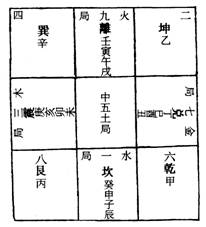 四
巽辛
局 九 火
離壬寅午戌
二
坤乙
木 三 局
震庚亥卯未
中五土局
局 七 金
八艮丙
局 一 水
坎癸申子辰
六乾甲